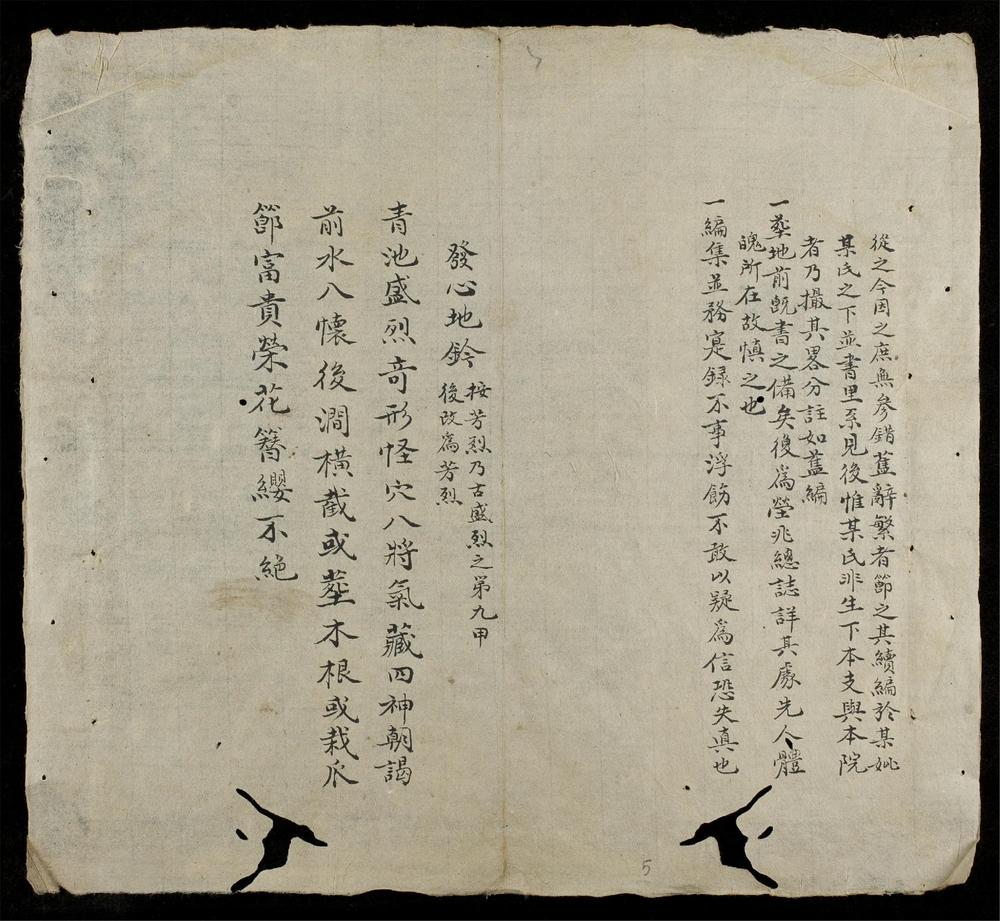 從之今因之庶無參錯舊辭繁者節之其續編於某妣
某氏之下並書里系見後惟某氏非生下本支與本院
者乃撮其畧分註如舊編
一塟地前既書之備矣復爲塋兆總誌詳其處先人體
魄所在故慎之也
一編集並務寔録不事浮飭不敢以疑爲信恐失真也
發心地鈐
按芳烈乃古盛烈之第九甲
後改爲芳烈
青池盛烈竒形怪穴八將氣藏四神朝謁
前水八懷後澗橫截或塟木根或栽瓜
節富貴榮花簪纓不絶
5